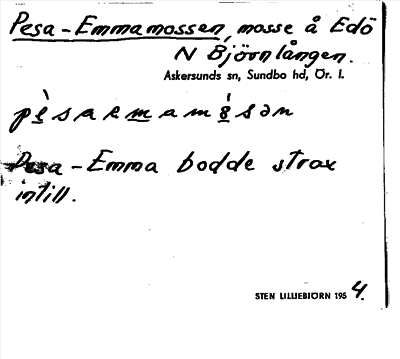 Pesa-Emmamossen, mosse å Edö
N Björnlången.
Askersunds sn, Sundbo hd, Ör. l.
Pesa-Emma bodde strax
intill.
STEN LILLIEBJÖRN 1954.